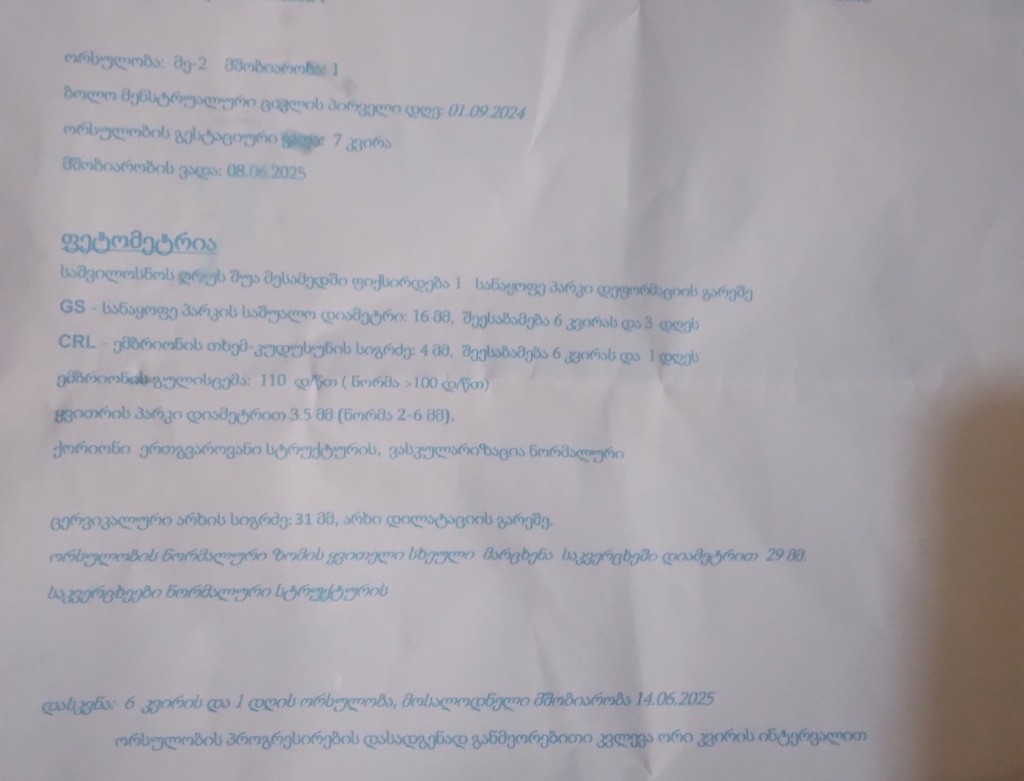 ორსულობა: მე-2 მშობიარობა: 1
ბოლო მენსტრუალური ციკლის პირველი დღე: 01.09.2024
ორსულობის გესტაციური ვადა: 7 კვირა
მშობიარობის ვადა: 08.06.2025
ფეტომეტრია
საშვილოსნოს ღრუს შუა მესამედში ფიქსირდება 1 სანაყოფე პარკი დეფორმაციის გარეშე
GS - სანაყოფე პარკის საშუალო დიამეტრი: 16 მმ, შეესაბამება 6 კვირას და 3 დღეს
CRL - ემბრიონის თხემ-კუდუსუნის სიგრძე: 4 მმ, შეესაბამება 6 კვირას და 1 დღეს
ემბრიონის გულისცემა: 110 დ/წთ ( ნორმა >100 დ/წთ)
ყვითრის პარკი დიამეტრით 3.5 მმ (ნორმა 2-6 მმ).
ქორიონი ერთგვაროვანი სტრუქტურის, ვასკულარიზაცია ნორმალური
ცერვიკალური არხის სიგრძე: 31 მმ, არხი დილატაციის გარეშე.
ორსულობის ნორმალური ზომის ყვითელი სხეული მარცხენა საკვერცხეში დიამეტრით 29 მმ.
საკვერცხეები ნორმალური სტრუქტურის
დასკვნა: 6 კვირის და 1 დღის ორსულობა, მოსალოდნელი მშობიარობა 14.06.2025
ორსულობის პროგრესირების დასადგენად განმეორებითი კვლევა ორი კვირის ინტერვალით